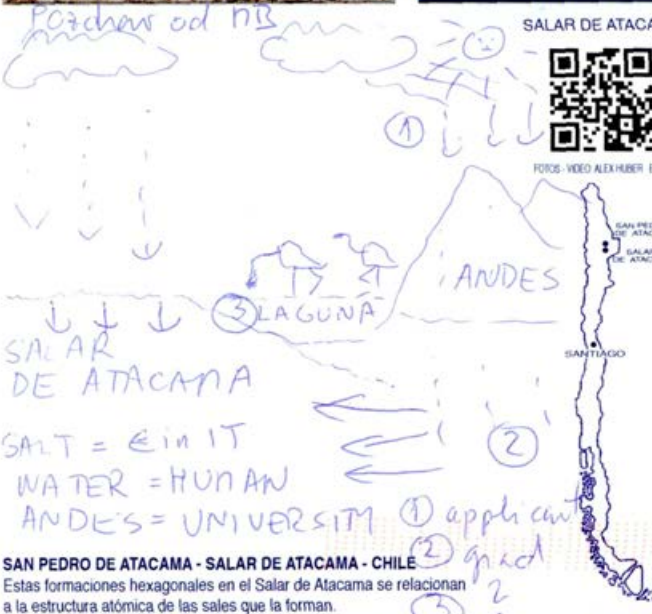 Pozdrav od NB
SALAR DE ATACA
①
FOTOS - VIDEO ALEX HUBER
SAN PED
DE ATAC
SALAR
DE ATAC
ANDES
③ LAGUNA
SALAR
DE ATACAMA
SANTIAGO
SALT = € in IT
②
WATER = HUMAN
ANDES = UNIVERSITY
① applicant
② grad
③
SAN PEDRO DE ATACAMA - SALAR DE ATACAMA - CHILE
Estas formaciones hexagonales en el Salar de Atacama se relacionan
a la estructura atómica de las sales que la forman.